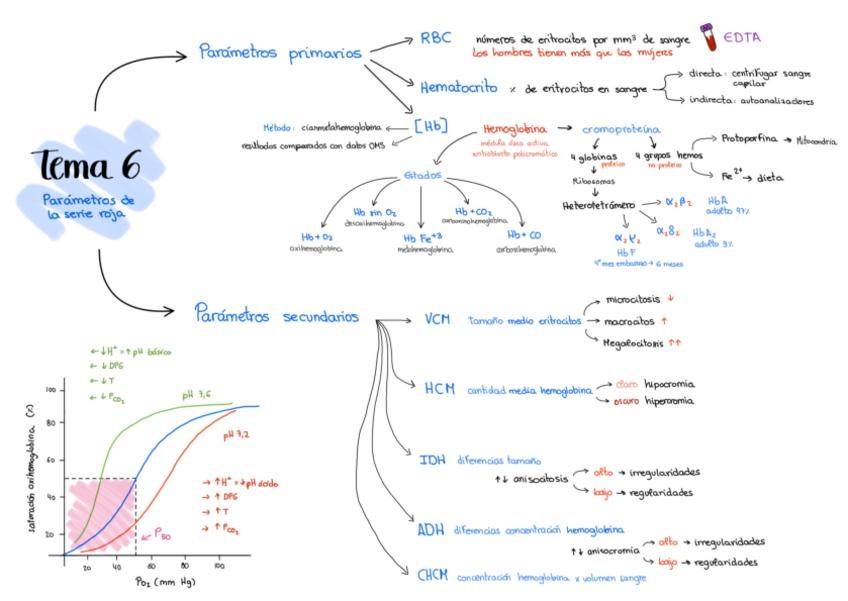 Tema 6
Parámetros de
la serie roja
Parámetros primarios
RBC
números de eritrocitos por mm³ de sangre
EDTA
Los hombres tienen más que las mujeres
Hematocrito
% de eritrocitos en sangre
directa: centrifugar sangre
capilar
indirecta: autoanalizadores
[Hb]
Método: cianmetahemoglobina
resultados comparados con datos OMS
Hemoglobina → cromoproteína
médula ósea activa
eritroblasto policromático
4 globinas
proteico
Ribosomas
Heterotetrámero
4 grupos hemos
no proteico
→ Mitocondria
Fe²⁺ → dieta
α₂β₂ HbA
adulto 97%
α₂δ₂ HbA₂
adulto 3%
HbF
Estados
Hb + O₂
oxihemoglobina
Hb sin O₂
desoxihemoglobina
Hb Fe⁺³
metahemoglobina
Hb + CO₂
carbaminohemoglobina
Hb + CO
carboxihemoglobina
Parámetros secundarios
VCM
tamaño medio eritrocitos
microcitosis ↓
macrocitos ↑
Megalocitosis ↑↑
HCM
cantidad media hemoglobina
claro hipocromia
oscuro hipercromia
IDH
diferencias tamaño
↑↓ anisocitosis
alto → irregularidades
bajo → regularidades
ADH
diferencias concentración hemoglobina
↑↓ anisocromía
alto → irregularidades
bajo → regularidades
CHCM
concentración hemoglobina x volumen sangre
← ↓H⁺ = ↑ pH básico
← ↓ DPG
← ↓ T
← ↓ P_CO₂
pH 7,6
pH 7,2
→ ↑H⁺ = ↓pH ácido
→ ↑ DPG
→ ↑ T
→ ↑ P_CO₂
P₅₀
Saturación oxihemoglobina (%)
100
80
60
40
20
20 40 60 80 100
Po₂ (mm Hg)